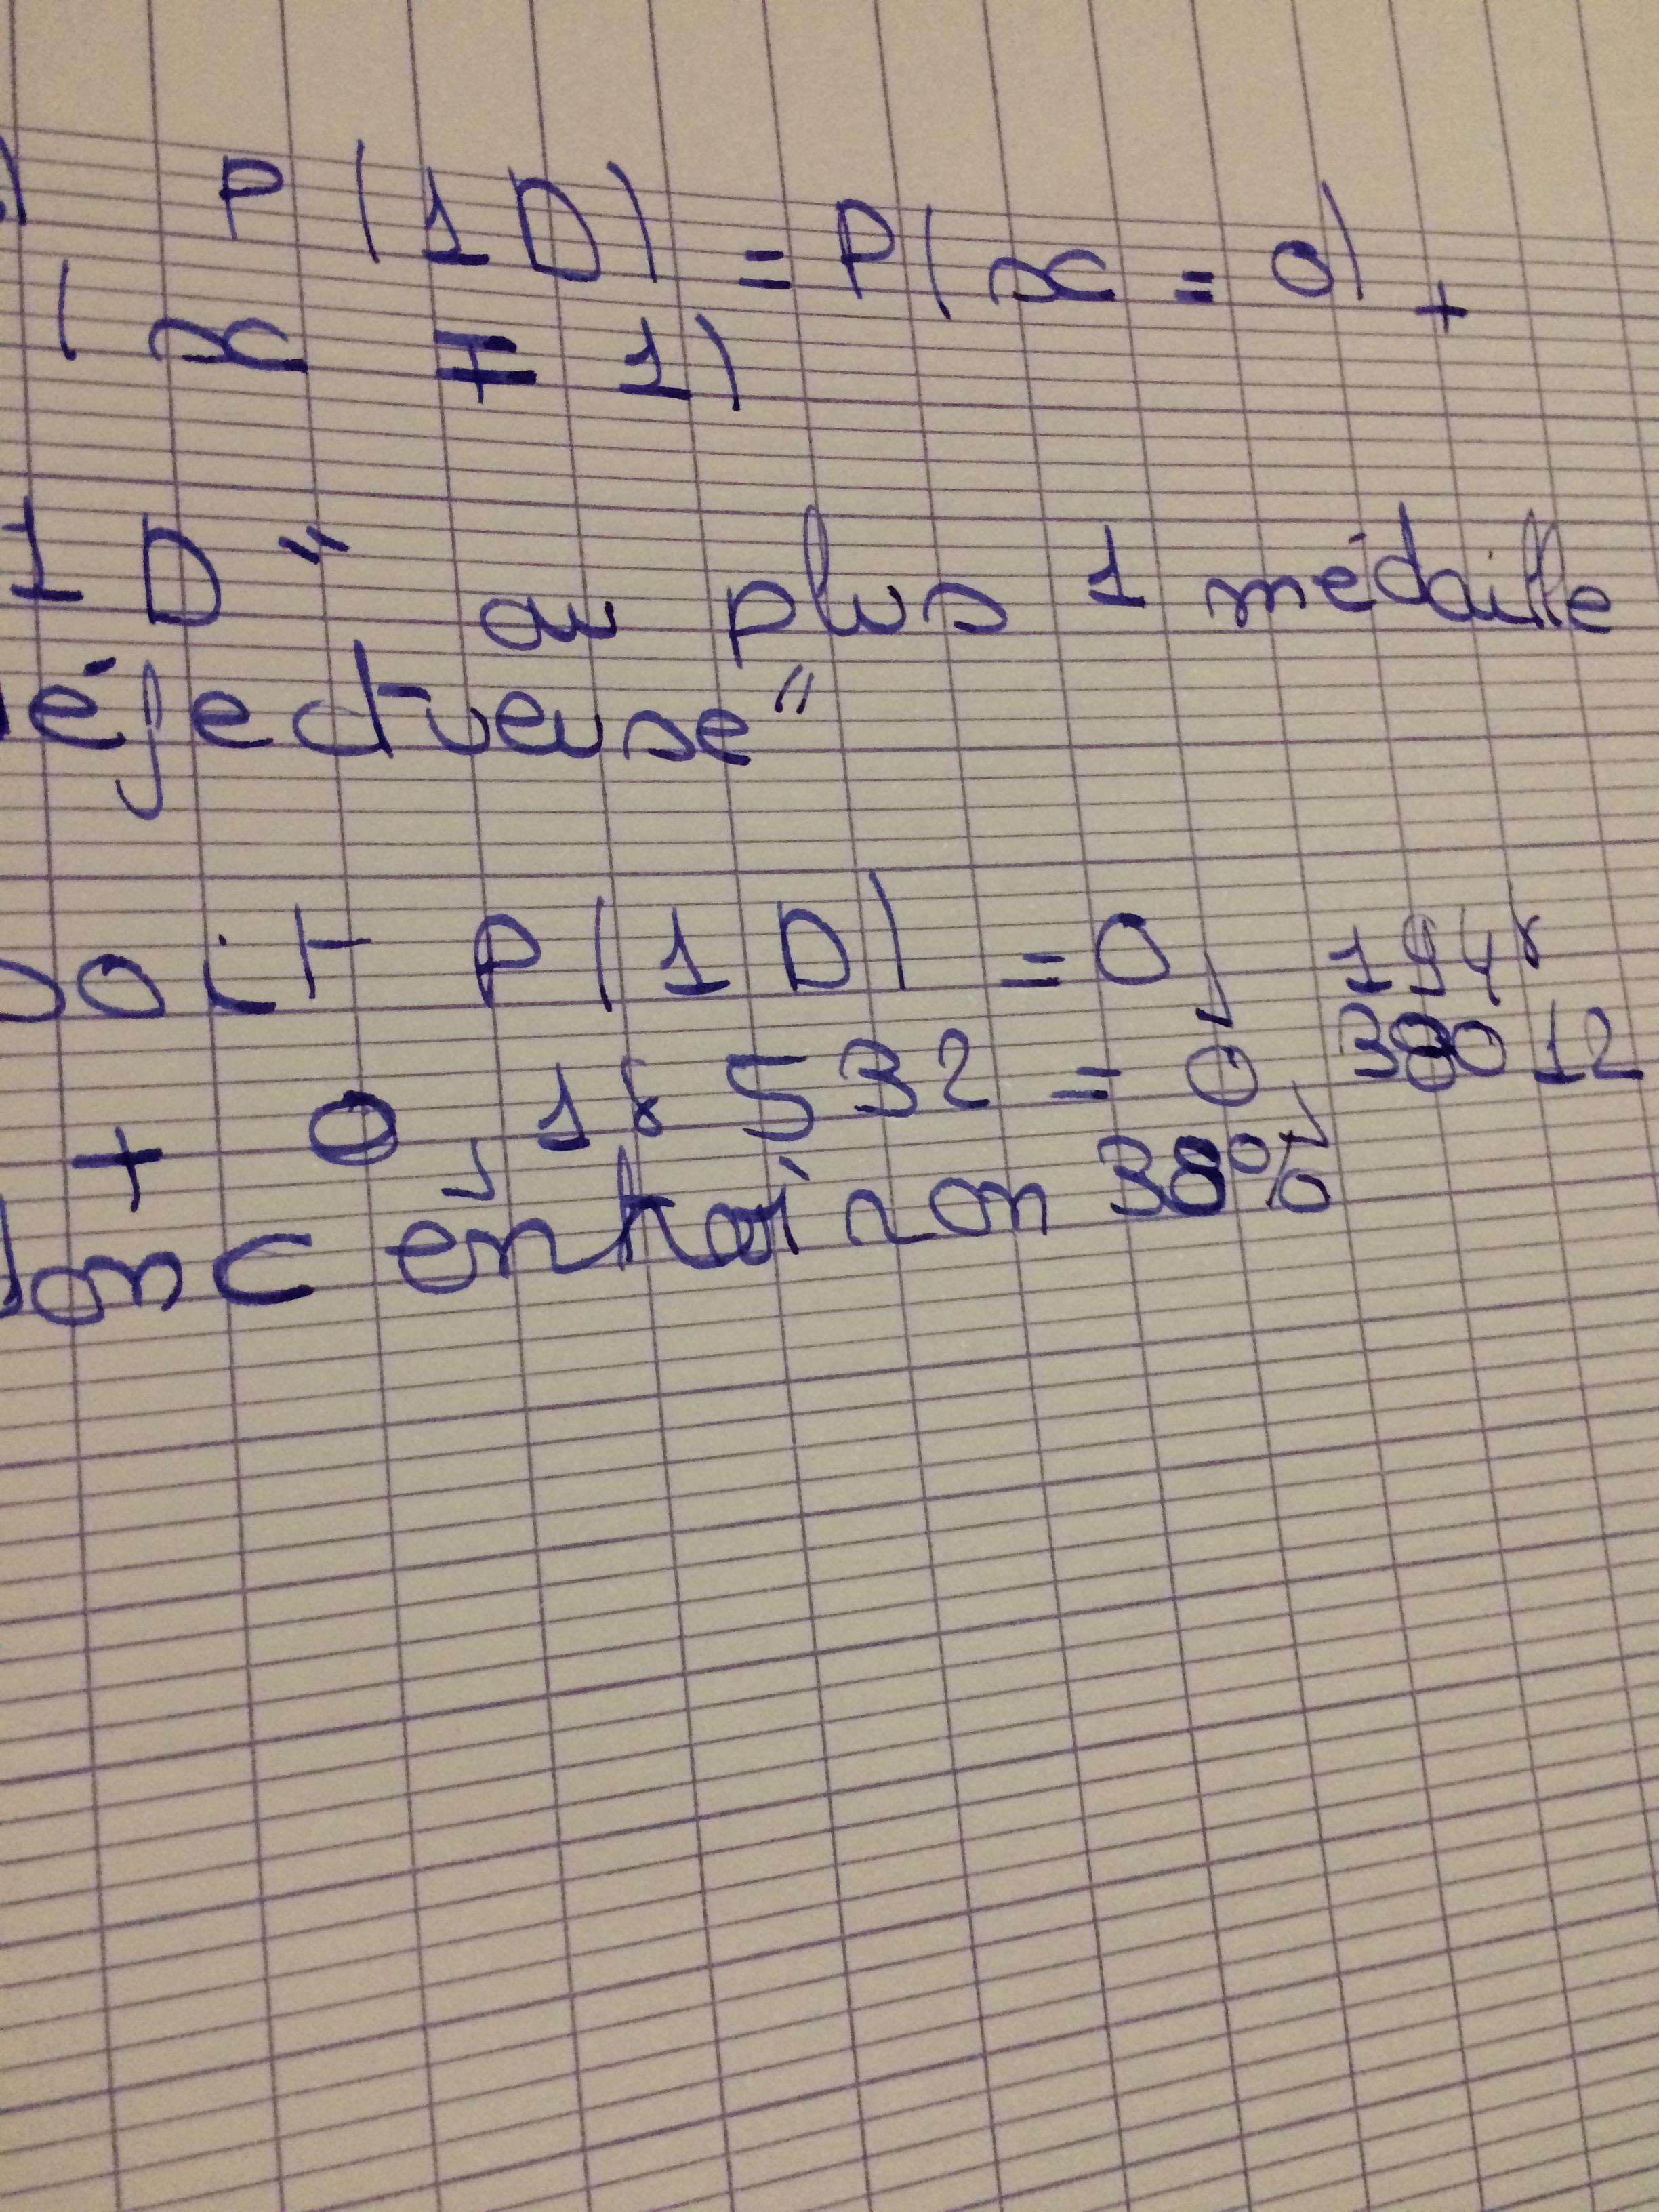 ) P(1D) = P(x = 0) +
(x = 1)
1D " au plus 1 médaille
éfectueuse"
soit P(1D) = 0,1948
+ 0,18532 = 0,38012
donc environ 38%